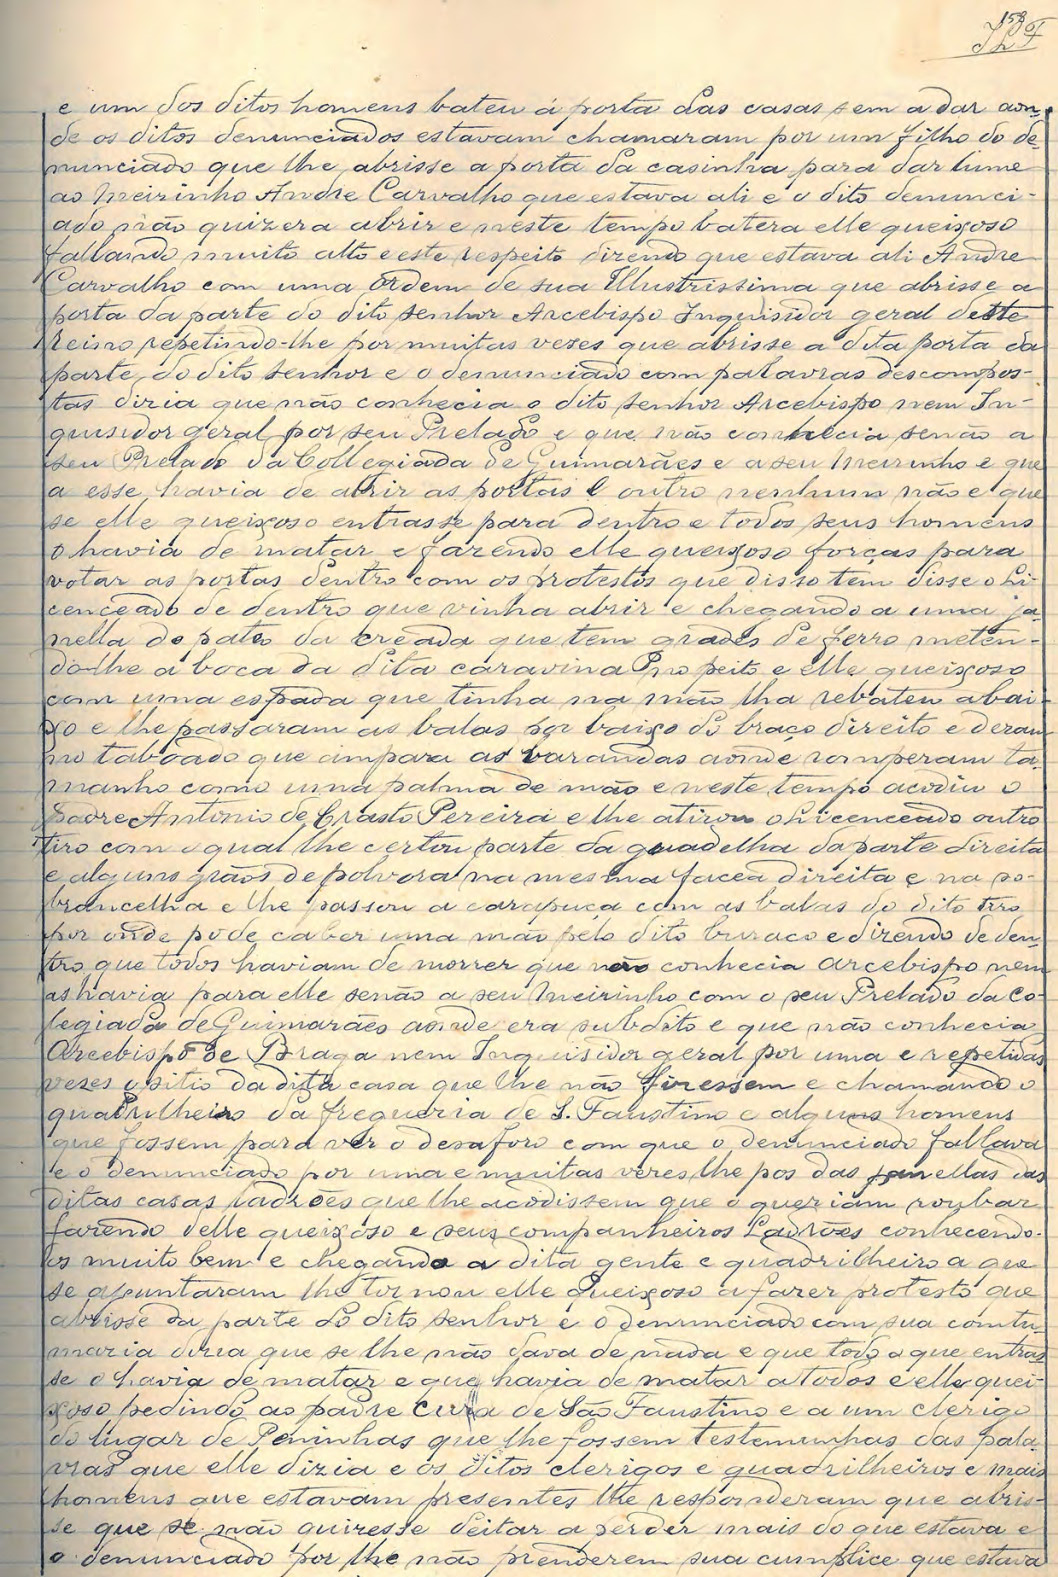 158
e um dos ditos homens bateu á porta das casas sem a dar aon-
de os ditos denunciados estavam chamaram por um filho do de-
nunciado que lhe abrisse a porta da casinha para dar lume
ao Meirinho Andre Carvalho que estava ali e o dito denunci-
ado não quizera abrir e neste tempo batera elle queixoso
fallando muito alto e este respeito dizendo que estava ali Andre
Carvalho com uma ordem de sua Illustrissima que abrisse a
porta da parte do dito senhor Arcebispo Inquisidor geral deste
reino repetindo-lhe por muitas vezes que abrisse a dita porta da
parte do dito senhor e o denunciado com palavras descompos-
tas dizia que não conhecia o dito senhor Arcebispo nem In-
quisidor geral por seu Prelado e que não conhecia senão a
seu Prelado da Collegiada de Guimarães e a seu Meirinho e que
a esse havia de abrir as portas e outro nenhum não e que
se elle queixoso entrasse para dentro e todos seus homens
o havia de matar e fazendo elle queixoso forças para
votar as portas dentro com os protestos que disso tem disse o Li-
cenceado de dentro que vinha abrir e chegando a uma ja-
nella do pateo da creada que tem grades de ferro meten-
do-lhe a boca da dita caravina no peito e elle queixoso
com uma espada que tinha na mão lha rebateu abai-
xo e lhe passaram as balas por baixo do braço direito e deram
no taboado que ampara as varandas aonde romperam ta-
manho como uma palma de mão e neste tempo acodiu o
Padre Antonio de Crasto Pereira e lhe atirou o Licenceado outro
tiro com o qual lhe certou parte da guadelha da parte direita
e alguns grãos de polvora na mesma facea direita e na so-
brancelha e lhe passou a carapuça com as balas do dito tiro
por onde pode caber uma mão pelo dito buraco e dizendo de den-
tro que todos haviam de morrer que não conhecia Arcebispo nem
as havia para elle senão a seu Meirinho com o seu Prelado da Co-
legiada de Guimarães aonde era subdito e que não conhecia
Arcebispo de Braga nem Inquisidor geral por uma e repetidas
vezes o sitio da dita casa que lhe não fizessem e chamando o
quadrilheiro da freguezia de S. Faustino e alguns homens
que fossem para ver o desaforo com que o denunciado fallava
e o denunciado por uma e muitas vezes lhe pos das janellas das
ditas casas ladrões que lhe acodissem que o queriam roubar
fazendo delle queixoso e seus companheiros Ladrões conhecendo-
os muito bem e chegando a dita gente e quadrilheiro a que
se ajuntaram lhe tornou elle queixoso a fazer protesto que
abrisse da parte do dito senhor e o denunciado com sua contu-
maria dizia que se lhe não dava de nada e que todo o que entras-
se o havia de matar e que havia de matar a todos e elle quei-
xoso pedindo ao padre Cura de São Faustino e a um clerigo
do lugar de Peninhas que lhe fossem testemunhas das pala-
vras que elle dizia e os ditos clerigos e quadrilheiros e mais
homens que estavam presentes lhe responderam que abris-
se que se não quizesse deitar a perder mais do que estava e
o denunciado por lhe não prenderem sua cumplice que estava